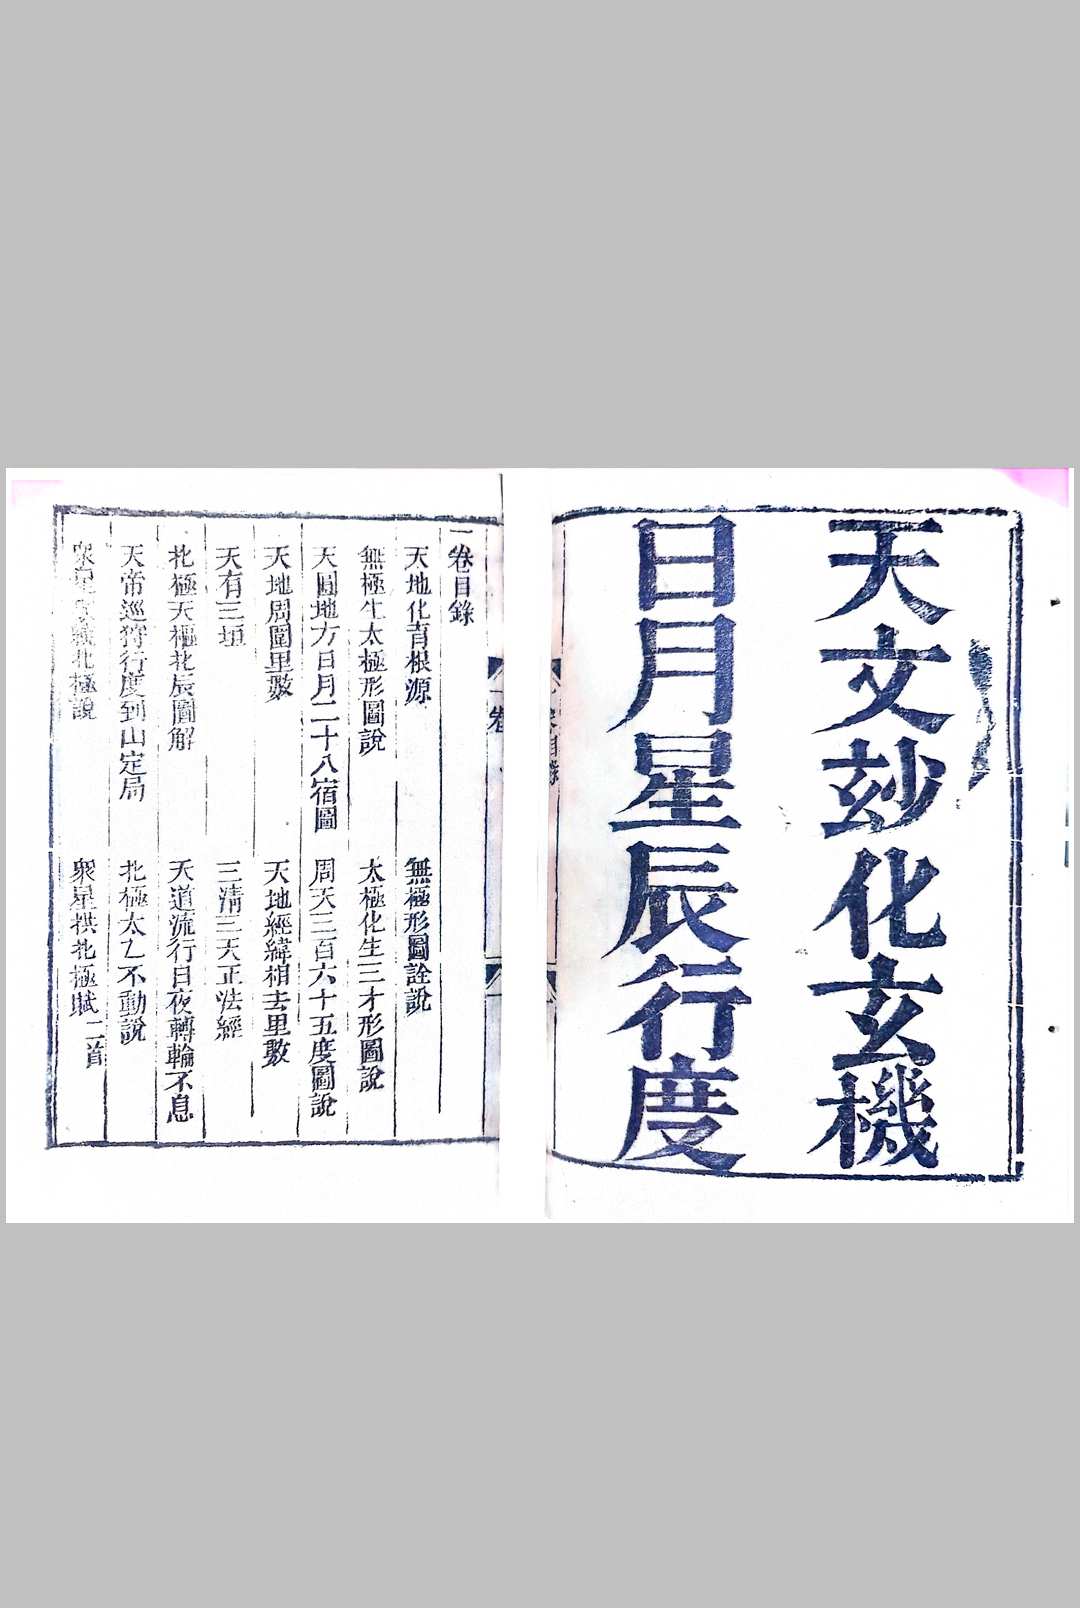 天文玅化玄機
日月星辰行度
一卷目錄
天地化育根源
無極形圖詮說
無極生太極形圖說
太極化生三才形圖說
天圓地方日月二十八宿圖
周天三百六十五度圖說
天地周圍里數
天地經緯相去里數
天有三垣
三清三天正法經
北極天樞北辰圖解
天道流行日夜轉輪不息
天帝巡狩行度到山定局
北極太乙不動說
北極說
眾星拱北極賦二首